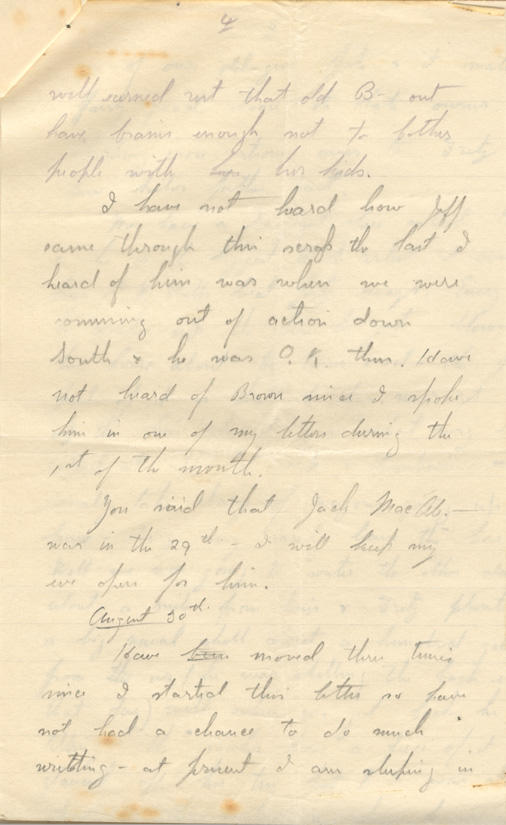 4
well earned rest that old B- out
have brains enough not to bother
people with her kids.
I have not heard how Jeff
came through this scrap the last I
heard of him was when we were
comming out of action down
South & he was O.K. then. Have
not heard of Brown since I spoke
him in one of my letters during the
1st of the month.
You said that Jack Mac Ab.—
was in the 29th - I will keep my
eye open for him.
August 30th.
Have been moved three times
since I started this letter so have
not had a chance to do much
writting - at present I am sleeping in